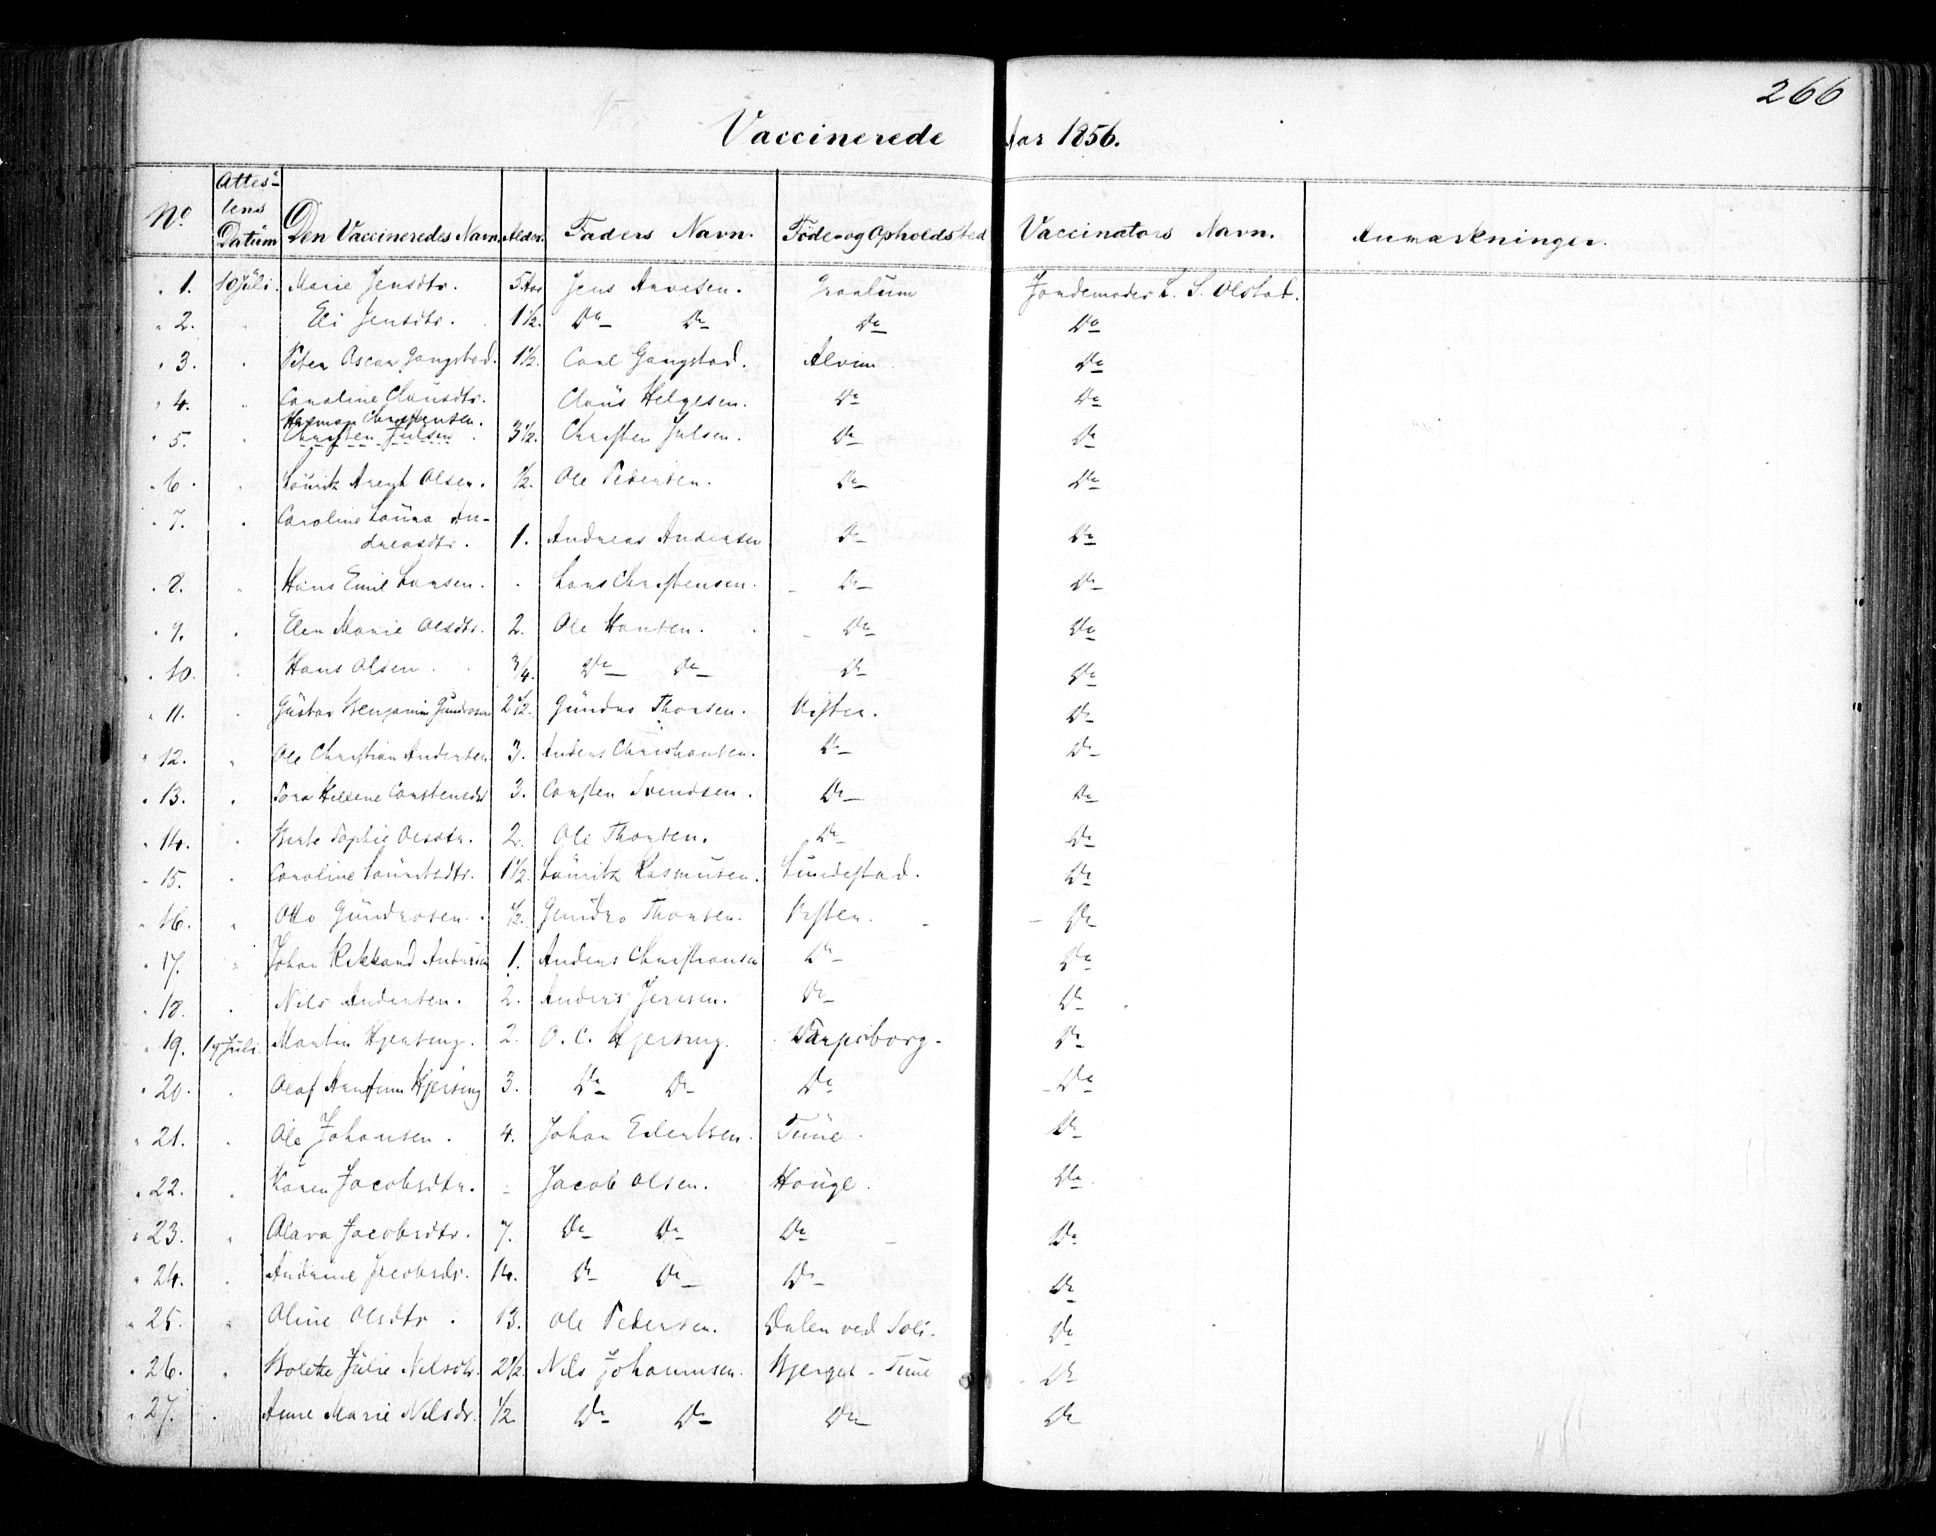 266
Vaccinerede Aar 1856.
No Attestens Datum Den Vaccineredes Navn. Alder. Faders Navn. Føde- og Opholdsted Vaccinators Navn. Anmærkninger.
1. 10 Juli. Marie Jensdtr. 5 Aar Jens Arvesen. Graalum Jordemoder L. S. Olstad.
2. " Eli Jensdtr. 1½. Do Do Do Do
3. " Peter Oscar Gangstad. 1½. Carl Gangstad. Alvim Do
4. " Caroline Clausdtr. Claus Helgesen. Do Do
Herman Christensen.
5. " Christen Julsen. 3½. Christen Julsen. Do Do
6. " Lauritz Arent Olsen. ½. Ole Pedersen. Do Do
7. " Caroline Laura An-
dreasdtr. 1. Andreas Andersen Do Do
8. " Hans Emil Larsen. " Lars Christensen. Do Do
9. " Elen Marie Olsdtr. 2. Ole Hansen. Do Do
10. " Hans Olsen. ¾. Do Do Do Do
11. " Gustav Benjamin Gundrosen 2½. Gundro Thorsen. Visten. Do
12. " Ole Christian Andersen 3. Anders Christiansen. Do Do
13. " Hellene Carstensdtr 3. Carsten Svendsen. Do Do
14. " Berte Sophie Olsdtr. 2. Ole Thorsen. Do Do
15. " Caroline Lauritsdtr. 1½. Lauritz Rasmusen. Lundestad. Do
16. " Otto Gundrosen. ½. Gundro Thorsen. Visten. Do
17. " Johan Rikhard Andersen 1. Anders Christiansen Do Do
18. " Nils Andersen. 2. Anders Jensen. Do Do
19. 19 Juli. Martin Hjersing. 2. O. C. Hjersing. Sarpsborg. Do
20. " Olaf Hjersing 3. Do Do Do Do
21. " Ole Johansen. 4. Johan Tune. Do
22. " Karen Jacobsdtr. " Jacob Olsen. Hauge. Do
23. " Olava Jacobsdtr. 7. Do Do Do Do
24. " Andrine Jacobsdr. 14. Do Do Do Do
25. " Oline Olsdtr. 13. Ole Pedersen. Dalen ved Soli. Do
26. " Bolette Julie Nilsdtr. 2½. Nils Johannesen. Bjerget - Tune Do
27. " Anne Marie Nilsdr. ½. Do Do Do Do